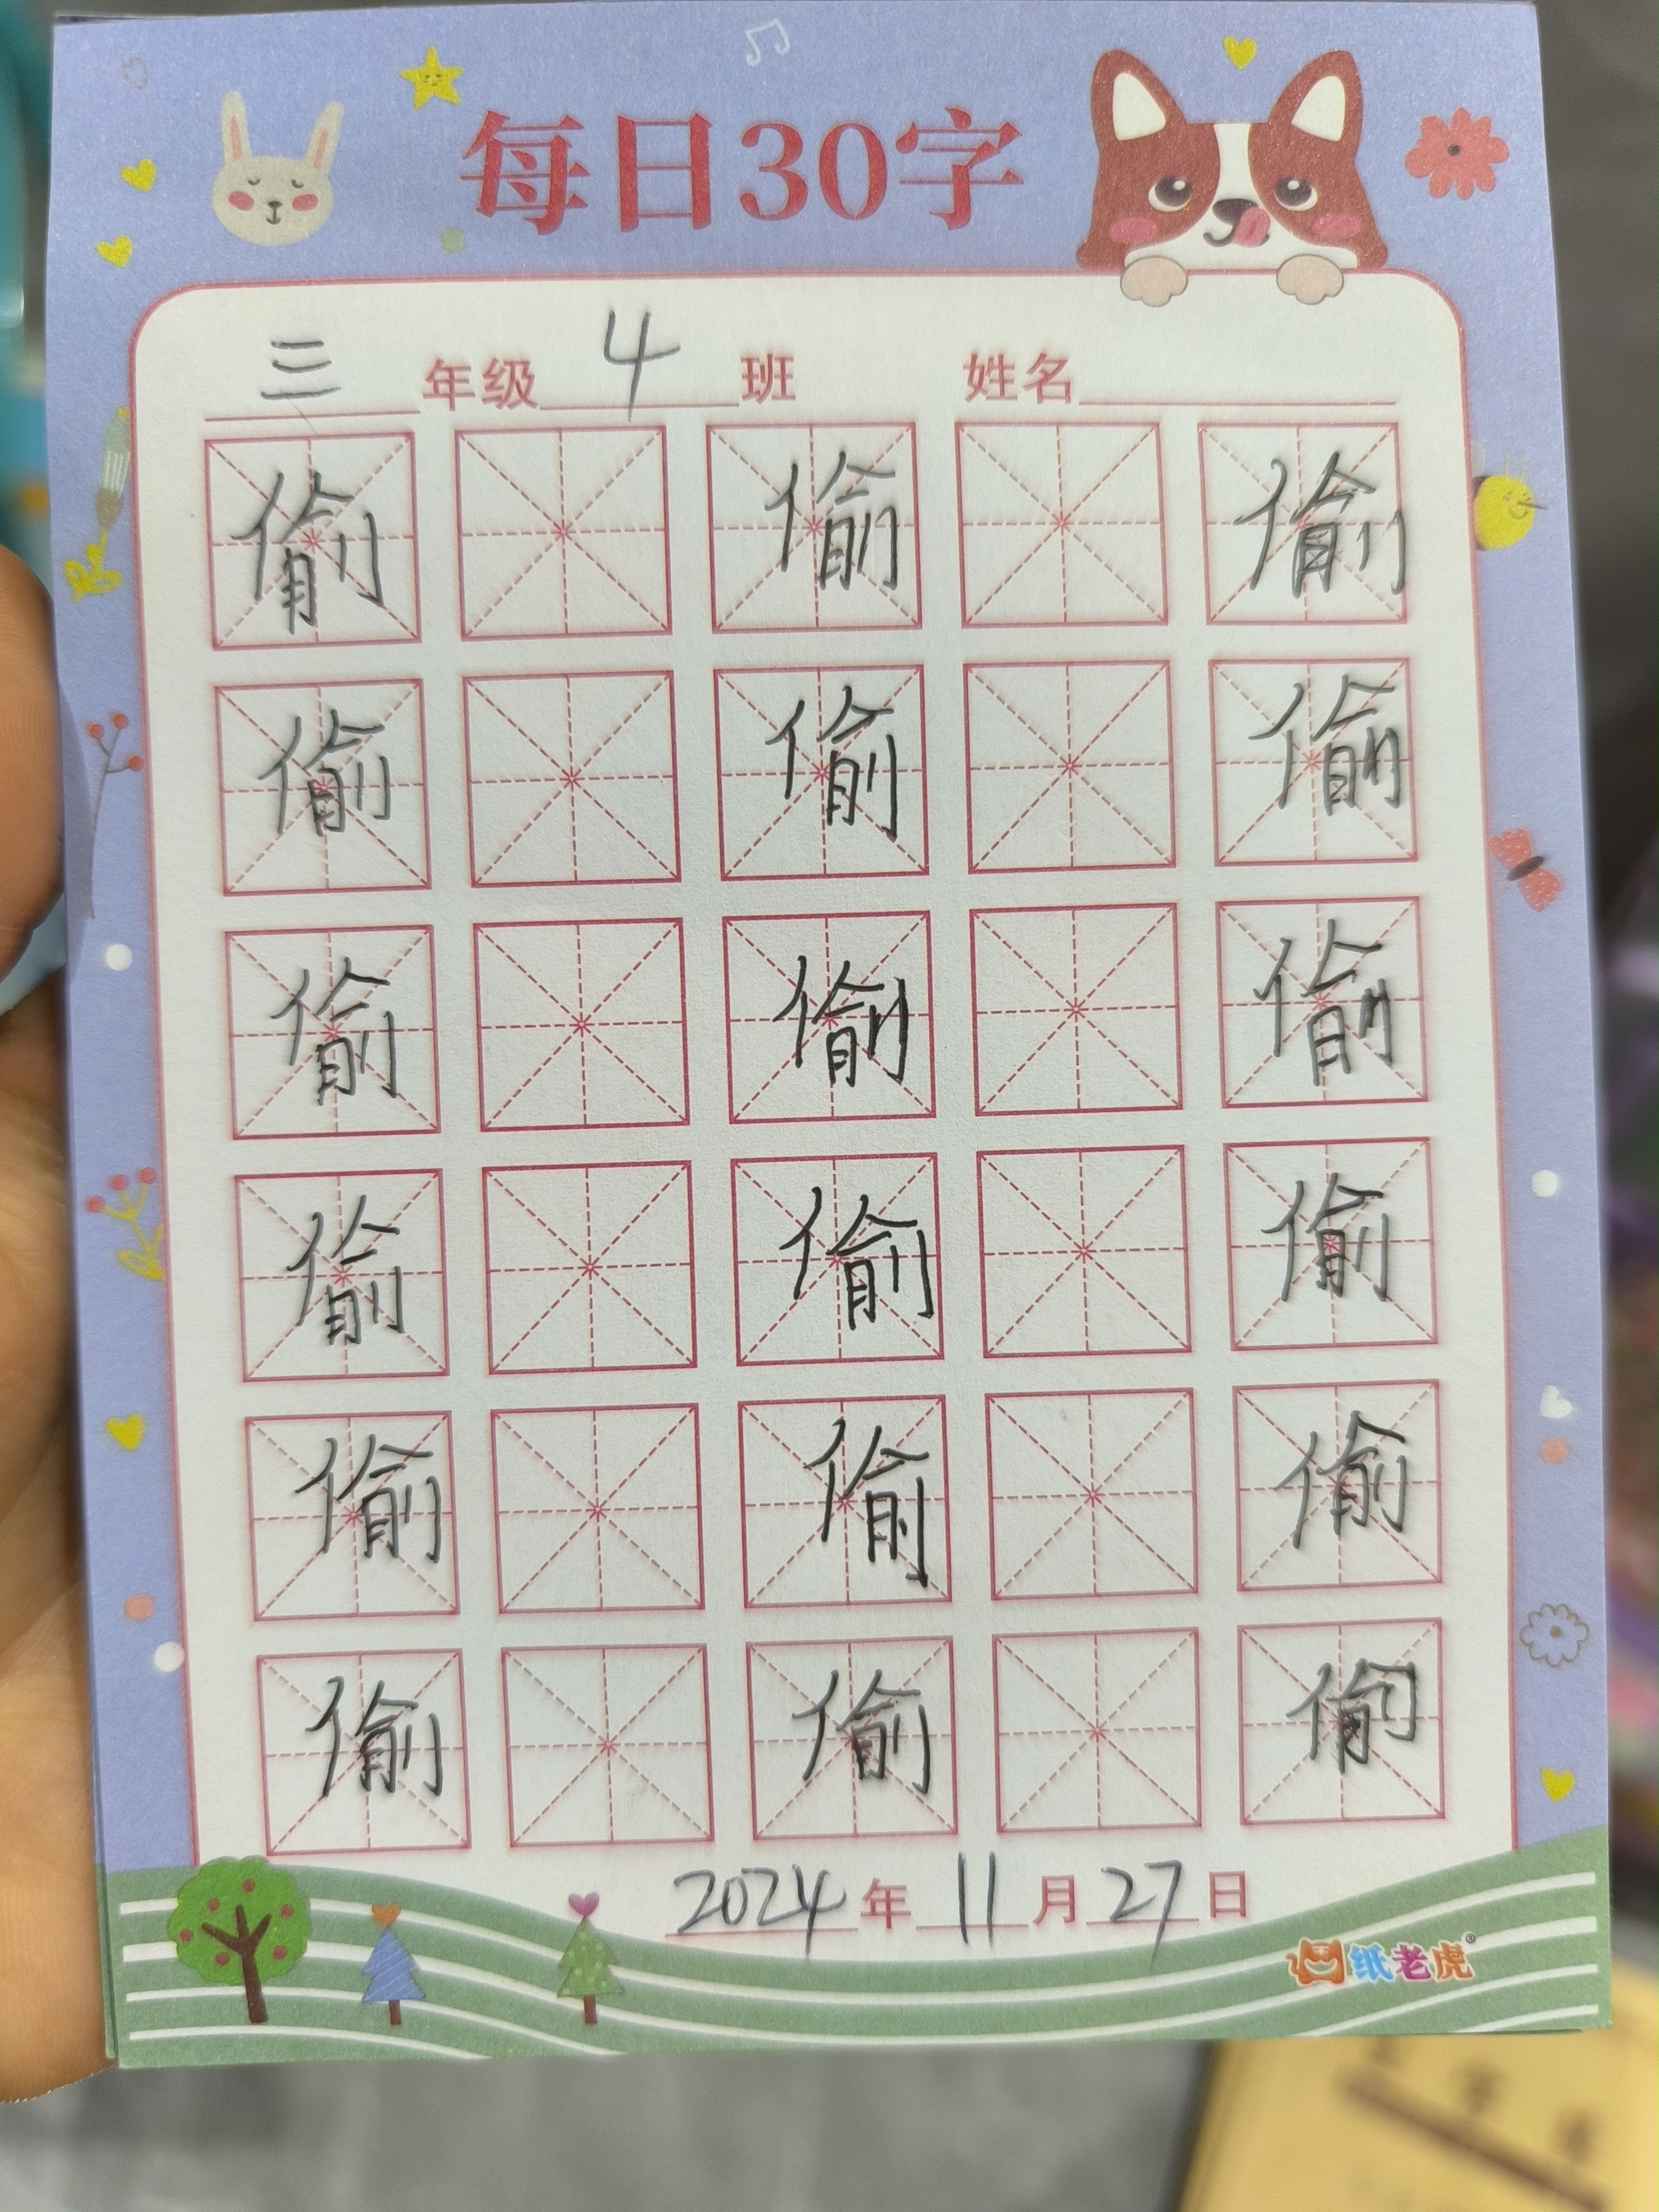 每日30字
三年级4班 姓名
偷 偷 偷
偷 偷 偷
偷 偷 偷
偷 偷 偷
偷 偷 偷
偷 偷 偷
2024年11月27日
纸老虎®